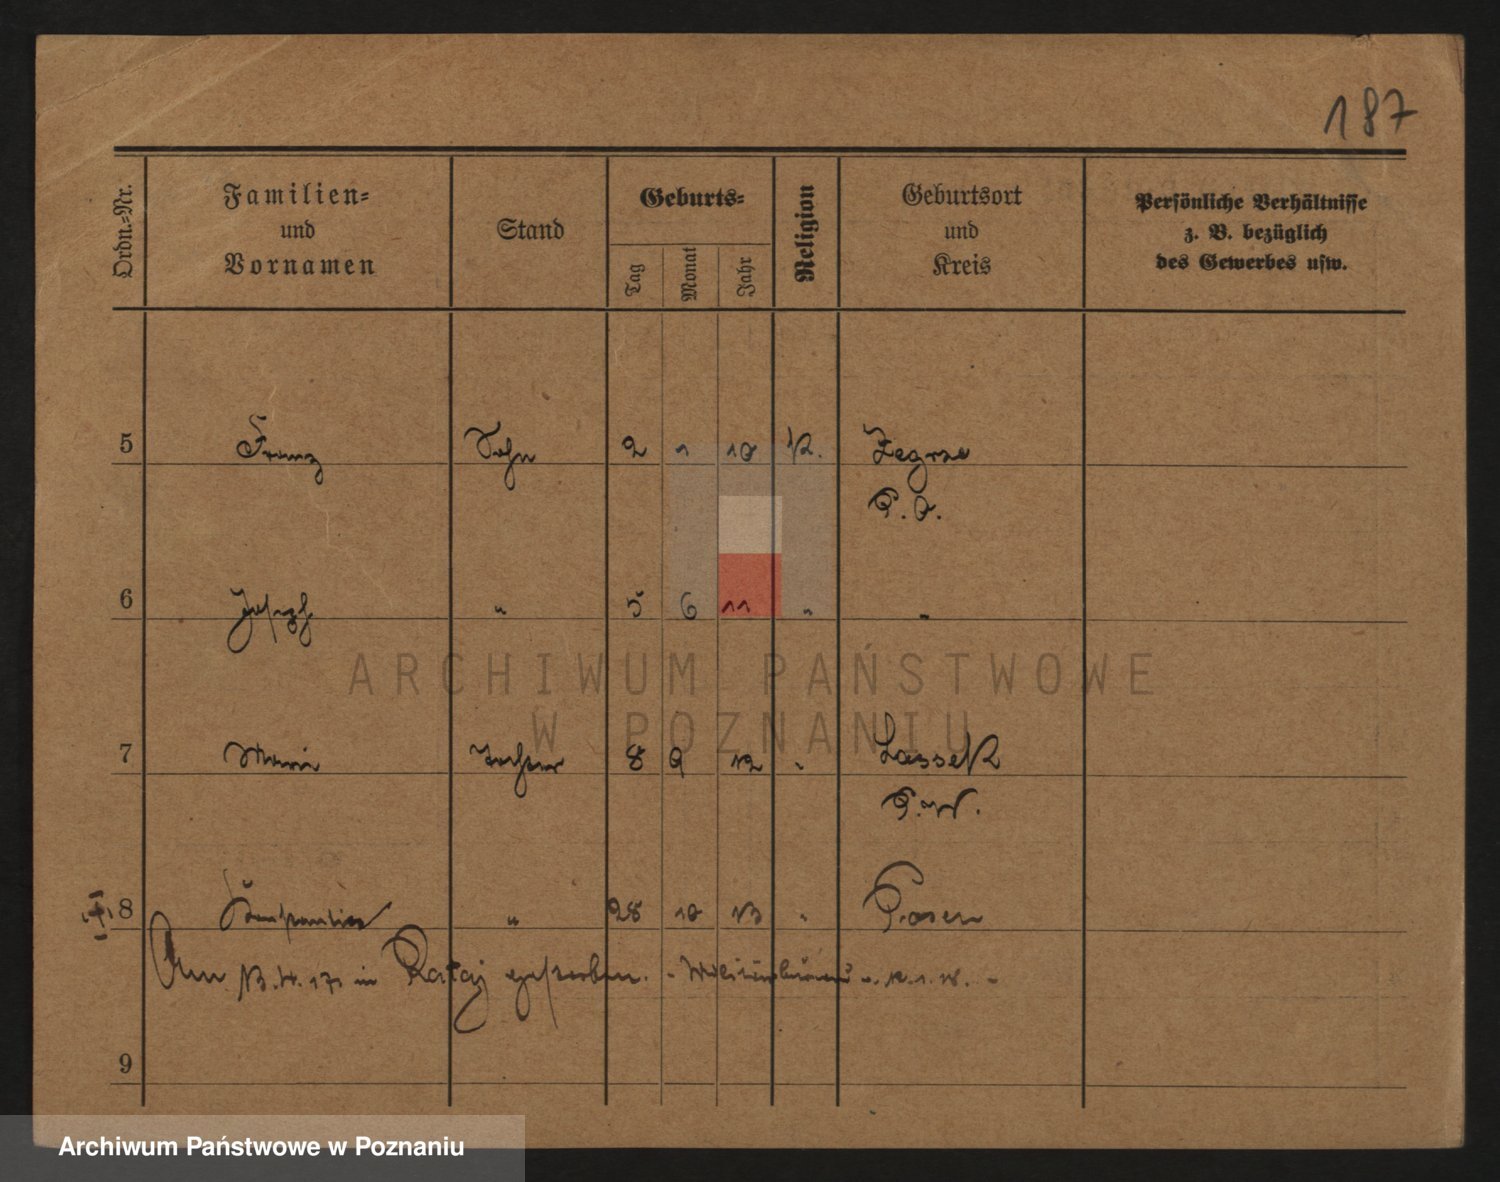 187
Ordn.-Nr.
Familien-
und
Vornamen
Stand
Geburts-
Tag
Monat
Jahr
Religion
Geburtsort
und
Kreis
Persönliche Verhältnisse
z. B. bezüglich
des Gewerbes usw.
5 Franz Sohn 2 1 10 K. Zegrze
P. O.
6 Joseph " 5 6 11 " "
ARCHIWUM PAŃSTWOWE
W POZNANIU
7 Maria Tochter 8 9 12 " Lassek
P. W.
8 " 28 10 13 " Posen
Am 13. 4. 17. in Rataj gestorben.
9
Archiwum Państwowe w Poznaniu